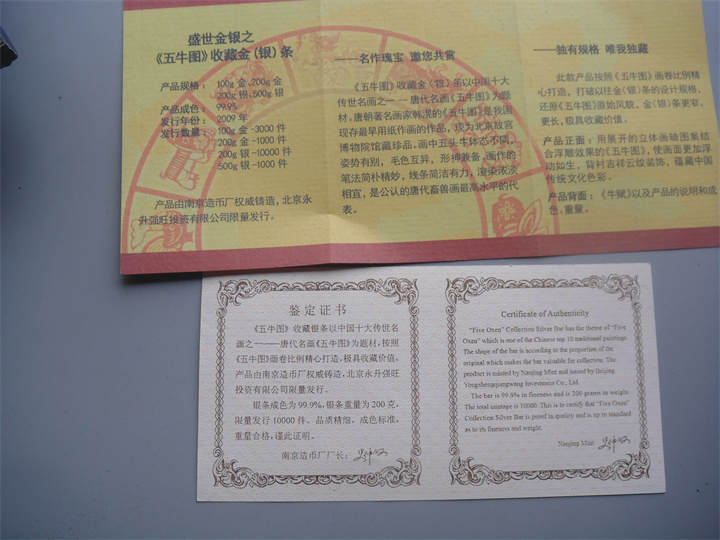 盛世金银之
《五牛图》收藏金(银)条
产品规格: 100g 金、200g 金
200g 银、500g 银
产品成色: 9995
发行年份: 2009 年
发行数量: 100g 金 -3000 件
200g 金 -1000 件
200g 银 -10000 件
500g 银 -1000 件
产品由南京造币厂权威铸造,北京永
升强旺投资有限公司限量发行。
——名作瑰宝 邀您共赏
《五牛图》收藏金(银)条以中国十大
传世名画之一——唐代名画《五牛图》为题
材,唐朝著名画家韩滉的《五牛图》是我国
现存最早用纸作画的作品,现为北京故宫
博物院馆藏珍品。画中五头牛体态不同、
姿势有别,毛色互异,形神兼备,画作的
笔法简朴精妙,线条简洁有力,渲染浓淡
相宜,是公认的唐代畜兽画最高水平的代
表。
——独有规格 唯我独藏
此款产品按照《五牛图》画卷比例精
心打造,打破以往金(银)条的设计规格,
还原《五牛图》原始风貌,金(银)条更窄、
更长,极具收藏价值。
产品正面:用展开的立体画轴图案结
合浮雕效果的《五牛图》,使画面更加浮
动如生,背衬吉祥云纹装饰,蕴藏中国
传统文化色彩。
产品背面:《牛赋》以及产品的说明和成
色、重量。
鉴定证书
《五牛图》收藏银条以中国十大传世名
画之一——唐代名画《五牛图》为题材,按照
《五牛图》画卷比例精心打造,极具收藏价值。
产品由南京造币厂权威铸造,北京永升强旺
投资有限公司限量发行。
银条成色为 99.9%,银条重量为 200 克,
限量发行 10000 件。品质精细,成色标准,
重量合格,谨此证明。
南京造币厂厂长:
Certificate of Authenticity
"Five Oxen" Collection Silver Bar has the theme of "Five
Oxen" which is one of the Chinese top 10 traditional paintings.
The shape of the bar is according to the proportion of the
original which makes the bar valuable for collection. The
product is minted by Nanjing Mint and issued by Beijing
Yongshengqiangwang Investment Co., Ltd.
The bar is 99.9% in fineness and is 200 grams in weight.
The total mintage is 10000. This is to certify that "Five Oxen"
Collection Silver Bar is proof in quality and is up to standard
as to its fineness and weight.
Nanjing Mint: